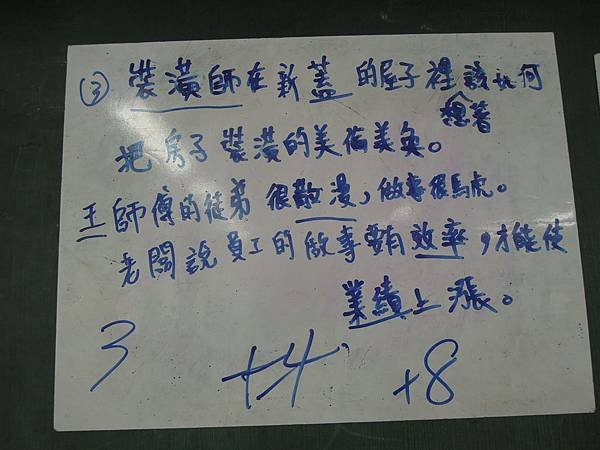 ③ 裝潢師在新蓋的屋子裡想著該如何
把房子裝潢的美侖美奐。
王師傅的徒弟很散漫,做事很馬虎。
老闆說員工的做事要有效率,才能使
業績上漲。
3 +4 +8